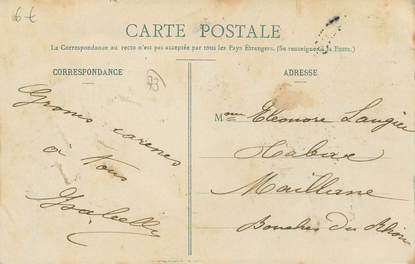 6€
CARTE POSTALE
La Correspondance au recto n'est pas acceptée par tous les Pays Étrangers. (Se renseigner à la Poste.)
CORRESPONDANCE
à Vous
Isabelle
ADRESSE
Mme Eléonore Laugier
Tabac
Maillane
Bouches du Rhône